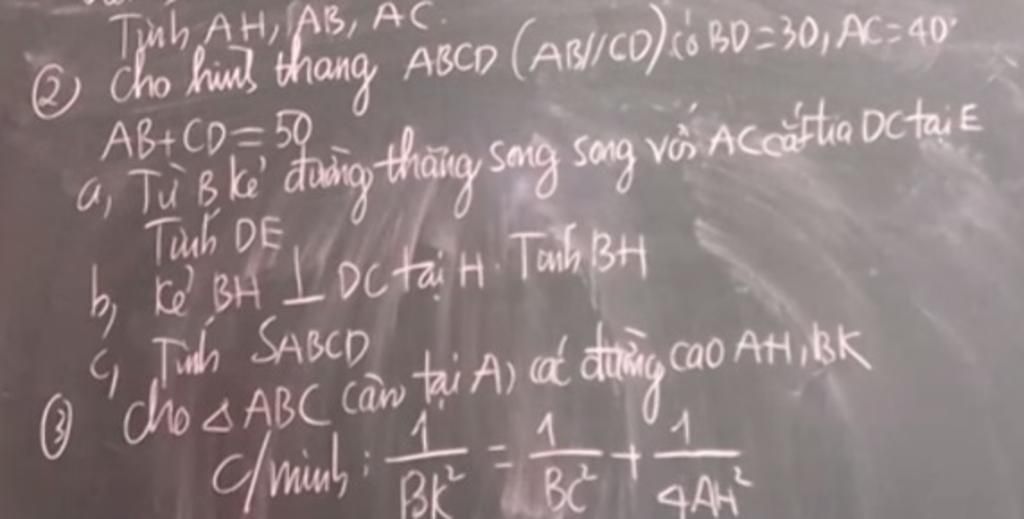 Tính AH, AB, AC.
② Cho hình thang ABCD (AB//CD) có BD=30, AC=40
AB+CD=50
a, Từ B kẻ đường thẳng song song với AC cắt tia DC tại E
Tính DE
b, Kẻ BH ⊥ DC tại H. Tính BH
c, Tính SABCD
③ Cho △ABC cân tại A, các đường cao AH, BK
C/minh: 1/BK² = 1/BC² + 1/4AH²